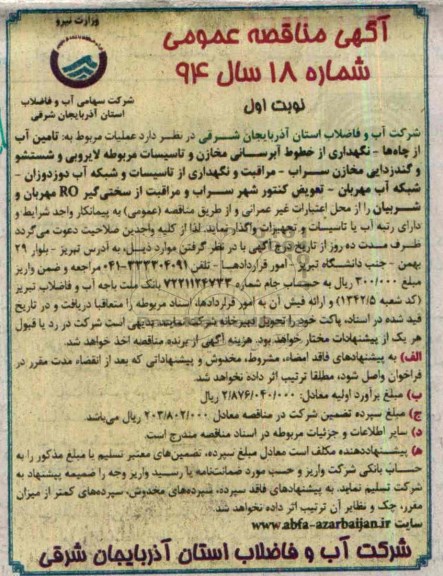 وزارت نیرو
آگهی مناقصه عمومی
شماره ۱۸ سال ۹۴
شرکت سهامی آب و فاضلاب
استان آذربایجان شرقی
نوبت اول
شرکت آب و فاضلاب استان آذربایجان شــرقی در نظـر دارد عملیات مربوط به: تامین آب
از چاه‌ها - نگهداری از خطوط آبرسـانی مخازن و تاسیسات مربوطه لایروبی و شستشو
و گندزدایی مخازن ســراب - مراقبت و نگهداری از تاسیسات و شبکه آب دوزدوزان -
شبکه آب مهربان - تعویض کنتور شهر ســراب و مراقبت از سختی‌گیر RO مهربان و
شــربیان را از محل اعتبارات غیر عمرانی و از طریق مناقصه (عمومی) به پیمانکار واجد شرایط و
دارای رتبه آب یا تاسیسات و تجهیزات واگذار نماید. لذا از کلیه واجدین صلاحیت دعوت می‌گردد
ظرف مــدت ده روز از تاریخ درج آگهی با در نظر گرفتن موارد ذیــل، به آدرس تبریز - بلوار ۲۹
بهمن - جنب دانشـگاه تبریز - امور قراردادهــا - تلفن ۳۳۳۰۴۰۹۱-۰۴۱ مراجعه و ضمن واریز
مبلغ ۳۰۰/۰۰۰ ریال به حساب جام شماره ۷۲۲۱۱۲۴۷۳۳ بانک ملت باجه آب و فاضلاب تبریز
(کد شعبه ۱۳۴۲/۵) و ارائه فیش آن به امور قراردادها، اسناد مربوطه را متعاقبا دریافت و در تاریخ
قید شده در اسناد، پاکت خود را تحویل دبیرخانه شرکت نمایند. بدیهی است شرکت در رد یا قبول
هر یک از پیشنهادات مختار خواهد بود. هزینه آگهی از برنده مناقصه اخذ خواهد شد.
الف) به پیشنهادهای فاقد امضاء، مشروط، مخدوش و پیشنهاداتی که بعد از انقضاء مدت مقرر در
فراخوان واصل شود، مطلقا ترتیب اثر داده نخواهد شد.
ب) مبلغ برآورد اولیه معادل: ۲/۸۷۶/۰۴۰/۰۰۰ ریال
ج) مبلغ سپرده تضمین شرکت در مناقصه معادل ۲۰۳/۸۰۲/۰۰۰ ریال می‌باشد.
د) سایر اطلاعات و جزئیات مربوطه در اسناد مناقصه مندرج است.
ه) پیشــنهاددهنده مکلف است معادل مبلغ سپرده، تضمین‌های معتبر تسلیم یا مبلغ مذکور را به
حســاب بانکی شرکت واریز و حسب مورد ضمانت‌نامه یا رسـید واریز وجه را ضمیمه پیشنهاد به
شرکت تسلیم نماید. به پیشنهادهای فاقد سپرده، سپرده‌های مخدوش، سپرده‌های کمتر از میزان
مقرر، چک و نظایر آن ترتیب اثر داده نخواهد شد.
سایت www.abfa-azarbaijan.ir
شرکت آب و فاضلاب استان آذربایجان شرقی